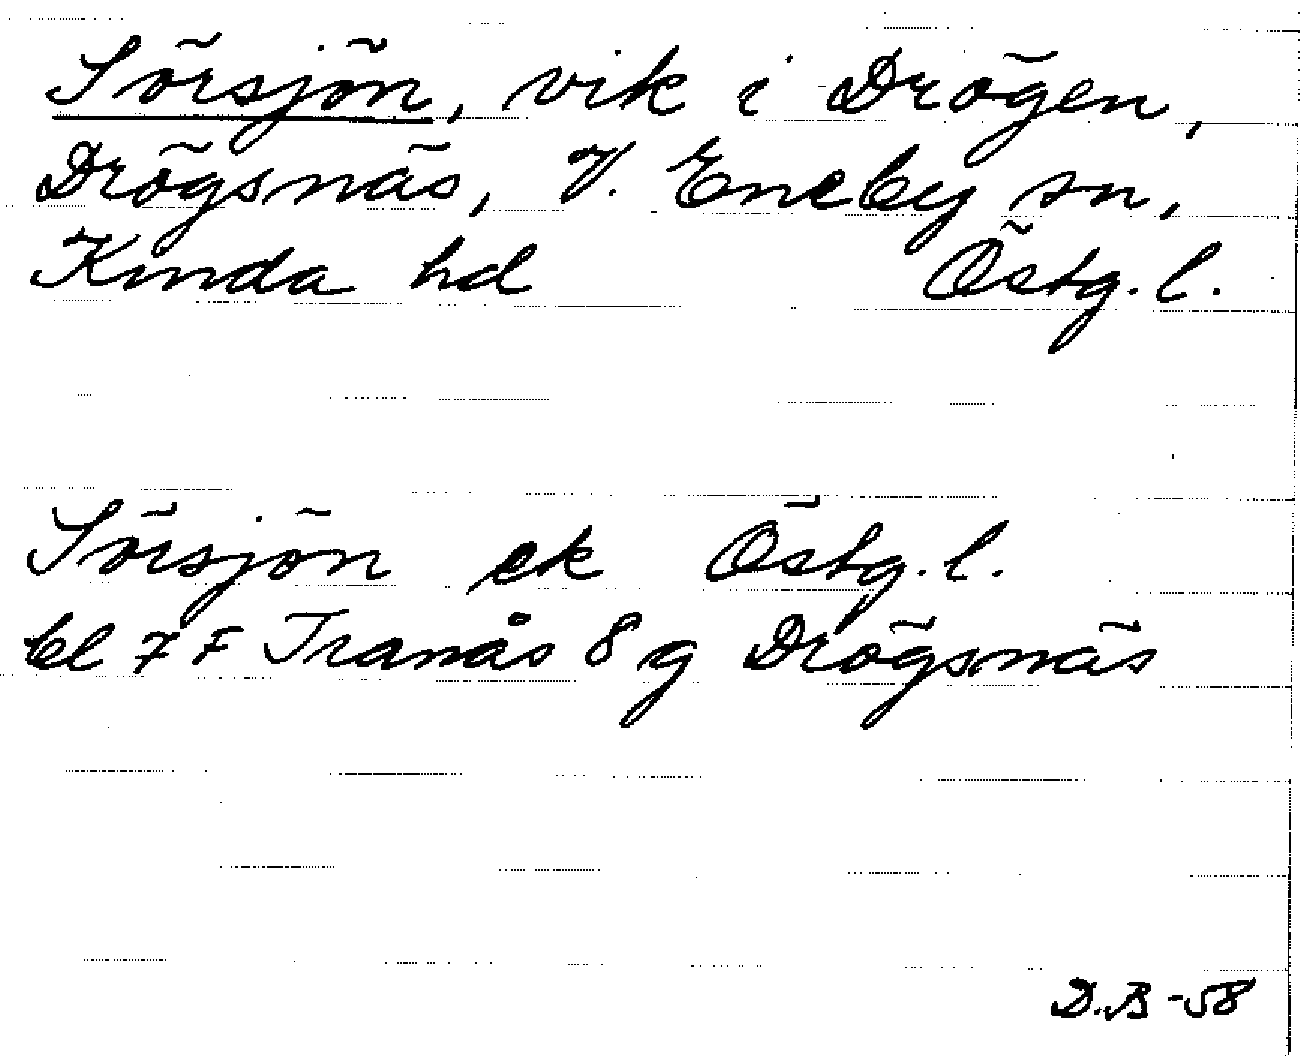 Sörsjön, vik i Drögen,
Drögsnäs, V. Eneby sn,
Kinda hd Östg. l.
Sörsjön ek Östg. l.
bl 7 F Tranås 8 g Drögsnäs
D.B -58